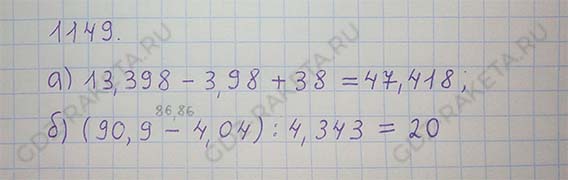 1149.
а) 13,398 - 3,98 + 38 = 47,418;
86,86
б) (90,9 - 4,04) : 4,343 = 20
GDZRAKETA.RU
GDZRAKETA.RU
GDZRAKETA.RU
GDZRAKETA.RU